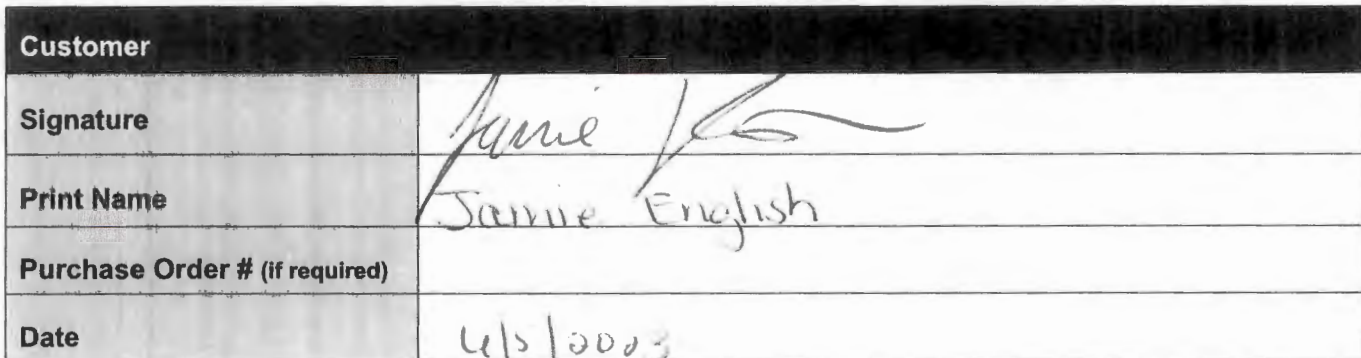 Customer
Signature Jamie
Print Name Jamie English
Purchase Order # (if required)
Date